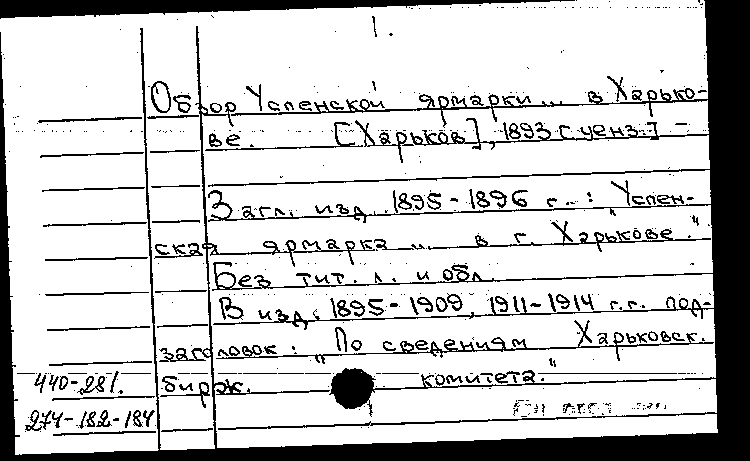 1.
Обзор Успенской ярмарки... в Харько-
ве. [Харьков], 1893 [ценз.] –
Загл. изд. 1895-1896 г..: "Успен-
ская ярмарка ... в г. Харькове."
Без тит. л. и обл.
В изд. 1895-1909, 1911-1914 г.г. под-
заголовок: "По сведениям Харьковск.
440-281. бирж. комитета."
274-182-184